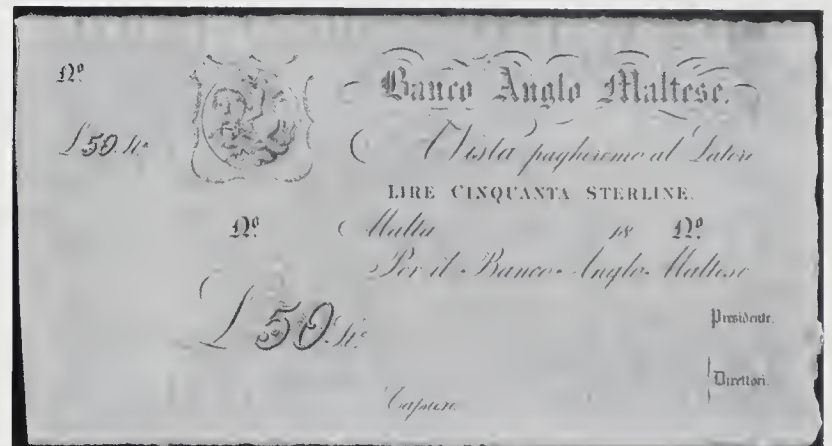 Nº
Banco Anglo Maltese.
£50. St.
A Vista pagheremo al Latore
LIRE CINQUANTA STERLINE.
Nº
Malta 18 Nº
Per il Banco Anglo Maltese
£50. St.
Presidente.
Direttori.